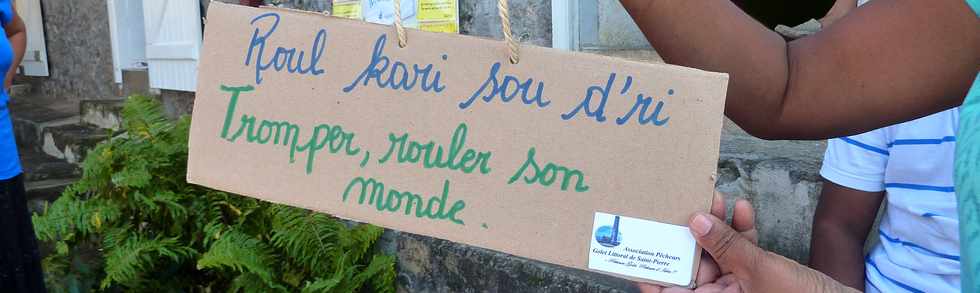 Roul kari sou d'ri
Tromper, rouler son
monde.
Association Pêcheurs
Golet Littoral de Saint-Pierre